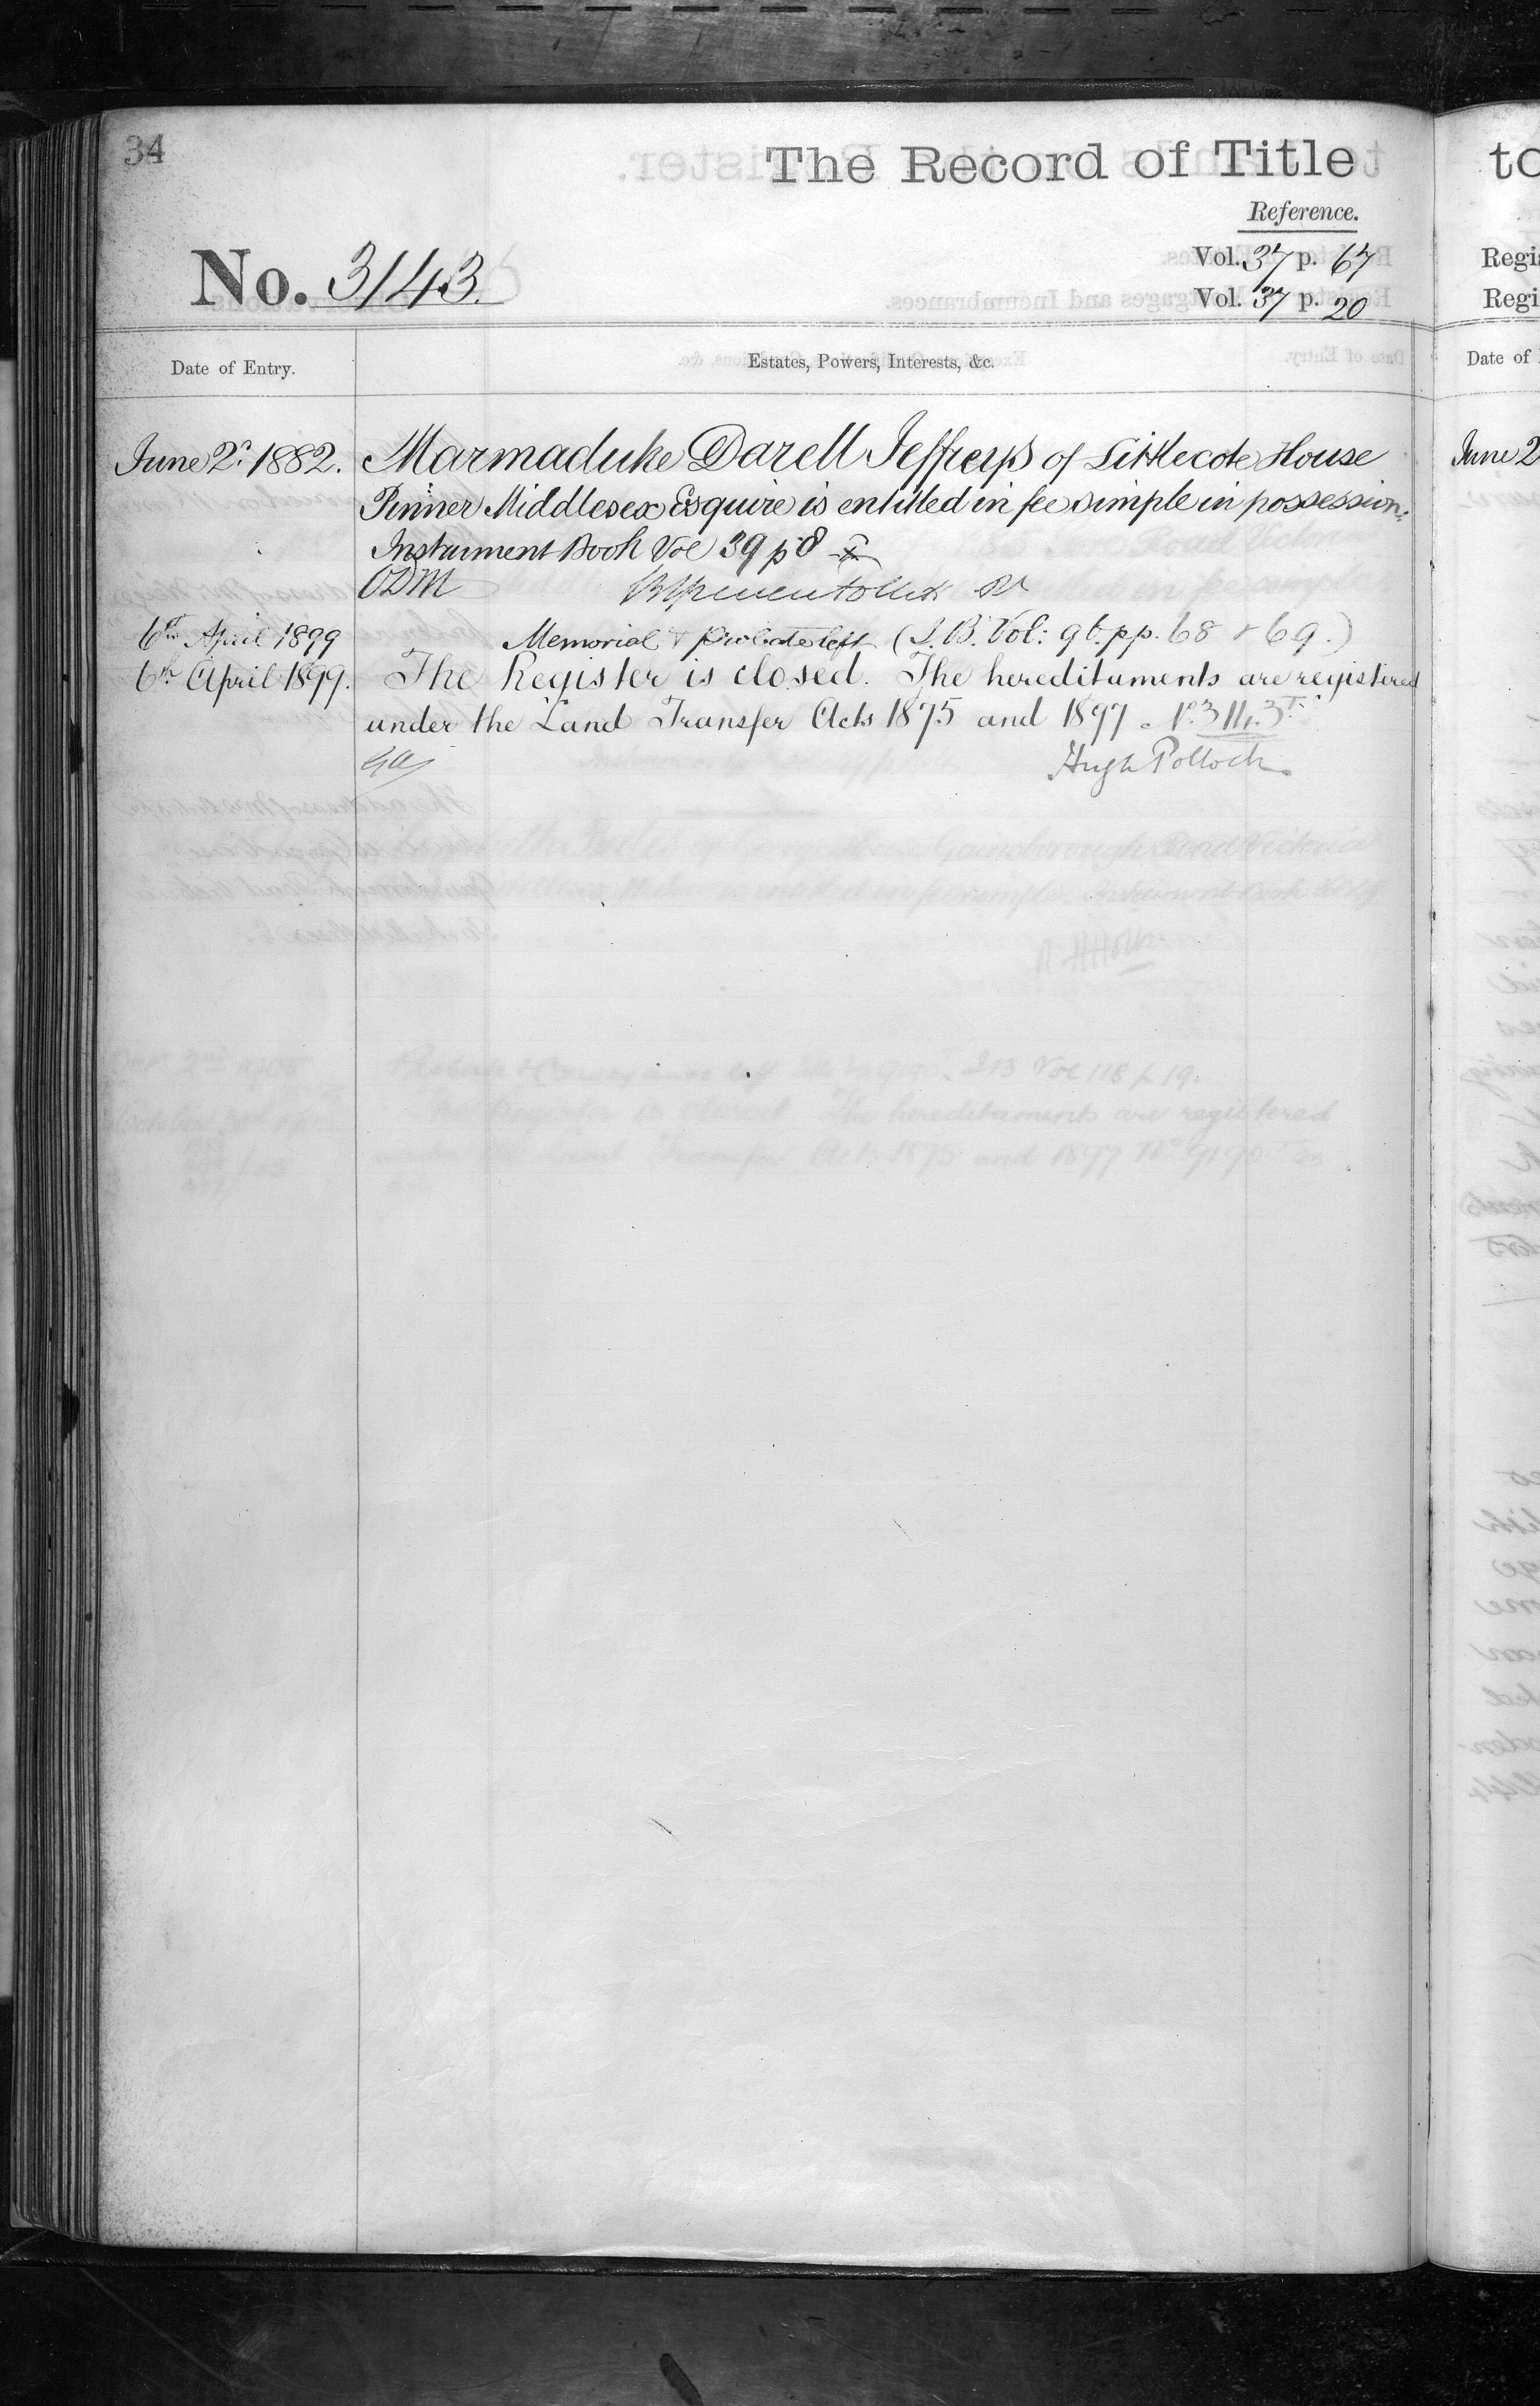 34
The Record of Title
Reference.
No. 3143.
Vol. 37 p. 67
Vol. 37 p. 20
Date of Entry.
Estates, Powers, Interests, &c.
June 2d. 1882. Marmaduke Darell Jeffreys of Littlecote House
Pinner Middlesex Esquire is entitled in fee simple in possession.
Instrument Book Vol 39 p 8
ODM
6th April 1899 Memorial & Probate left (I. B. Vol: 96. pp. 68 & 69.)
6th April 1899. The Register is closed. The hereditaments are registered
under the Land Transfer Acts 1875 and 1897.
Hugh Pollock
to
Regi
Regi
Date of
June 2